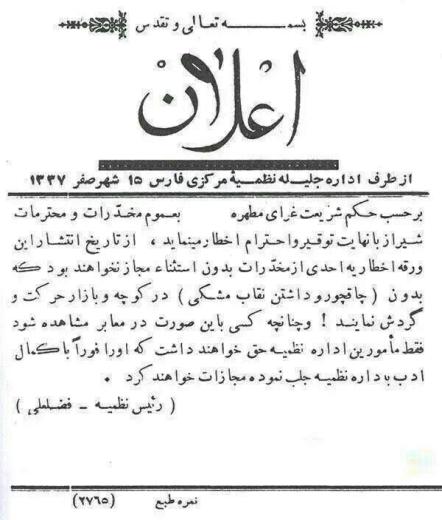 بسمـــه تعالی و تقدس
اعلان
از طرف اداره جلیله نظمیۀ مرکزی فارس ۱۵ شهر صفر ۱۳۳۷
برحسب حکم شریعت غرای مطهره بعموم مخدّرات و محترمات
شیراز با نهایت توقیر و احترام اخطار مینماید ، از تاریخ انتشار این
ورقه اخطاریه احدی از مخدّرات بدون استثناء مجاز نخواهند بود که
بدون ( چاقچور و داشتن نقاب مشکی ) در کوچه و بازار حرکت و
گردش نمایند ! وچنانچه کسی باین صورت در معابر مشاهده شود
فقط مأمورین اداره نظمیه حق خواهند داشت که اورا فوراً با کمال
ادب باداره نظمیه جلب نموده مجازات خواهند کرد .
( رئیس نظمیه ـ فضلعلی )
نمره طبع (۲۷۶۵)